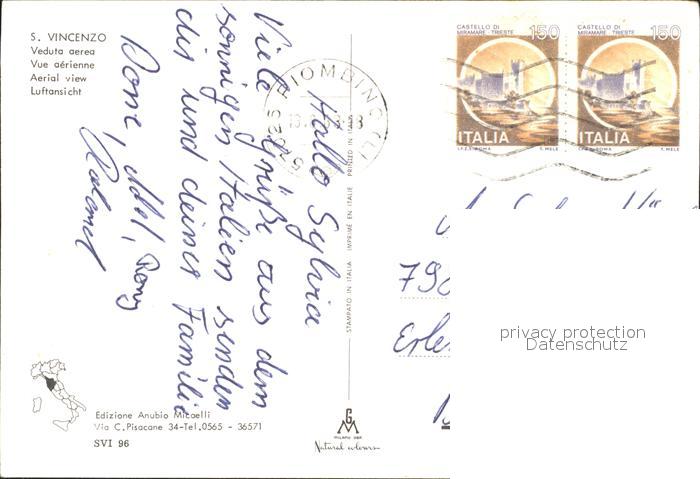 S. VINCENZO
Veduta aerea
Vue aérienne
Aerial view
Luftansicht
Hallo Sylvia
Viele Grüße aus dem
sonnigen Italien senden
dir und deiner Familie
CASTELLO DI
MIRAMARE · TRIESTE
150
ITALIA
I.P.Z.S. ROMA
T. MELE
CASTELLO DI
MIRAMARE · TRIESTE
150
ITALIA
ROMA
T. MELE
PIOMBINO
STAMPATO IN ITALIA IMPRIMÉ EN ITALIE PRINTED IN ITALY
privacy protection
Datenschutz
Edizione Anubio Micaelli
Via C. Pisacane 34-Tel.0565 - 36571
SVI 96
G
M
MILANO
Natural colours